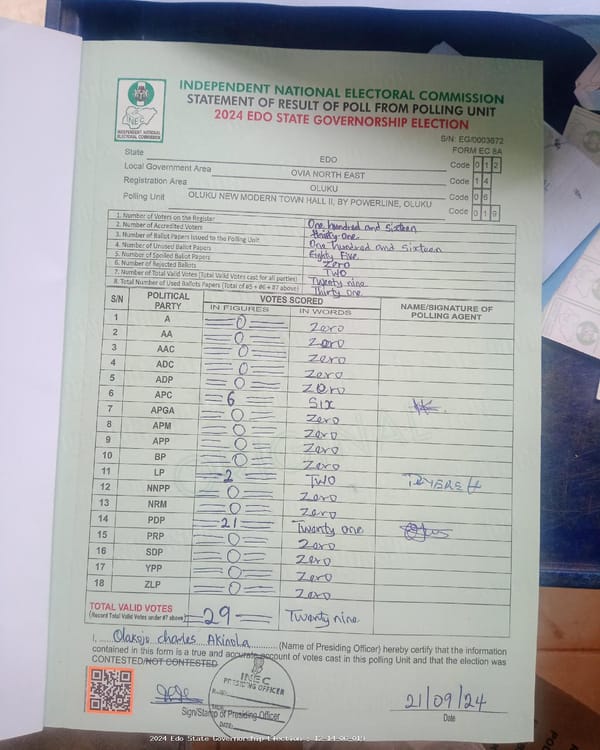 INDEPENDENT NATIONAL ELECTORAL COMMISSION
STATEMENT OF RESULT OF POLL FROM POLLING UNIT
2024 EDO STATE GOVERNORSHIP ELECTION
INEC
INDEPENDENT NATIONAL ELECTORAL COMMISSION
S/N: EG/0003672
FORM EC 8A
State EDO Code 0 1 2
Local Government Area OVIA NORTH EAST Code 1 4
Registration Area OLUKU Code 0 6
Polling Unit OLUKU NEW MODERN TOWN HALL II, BY POWERLINE, OLUKU Code 0 1 9
1. Number of Voters on the Register One hundred and Sixteen
2. Number of Accredited Voters thirty-one
3. Number of Ballot Papers Issued to the Polling Unit One hundred and Sixteen
4. Number of Unused Ballot Papers Eighty Five
5. Number of Spoiled Ballot Papers Zero
6. Number of Rejected Ballots Two
7. Number of Total Valid Votes (Total Valid Votes cast for all parties) Twenty nine
8. Total Number of Used Ballots Papers (Total of #5 + #6 + #7 above) Thirty One
S/N POLITICAL PARTY VOTES SCORED NAME/SIGNATURE OF POLLING AGENT
IN FIGURES IN WORDS
1 A 0 Zero
2 AA 0 Zero
3 AAC 0 Zero
4 ADC 0 Zero
5 ADP 0 Zero
6 APC 6 Six
7 APGA 0 Zero
8 APM 0 Zero
9 APP 0 Zero
10 BP 0 Zero
11 LP 2 Two
12 NNPP 0 Zero
13 NRM 0 Zero
14 PDP 21 Twenty one
15 PRP 0 Zero
16 SDP 0 Zero
17 YPP 0 Zero
18 ZLP 0 Zero
TOTAL VALID VOTES 29 Twenty nine
(Record Total Valid Votes under #7 above)
I, Olakojo charles Akinola (Name of Presiding Officer) hereby certify that the information
contained in this form is a true and accurate account of votes cast in this polling Unit and that the election was
CONTESTED/NOT CONTESTED
INEC
PRESIDING OFFICER
DATE:
21/09/24
Sign/Stamp of Presiding Officer Date
2024 Edo State Governorship Election : 12-14-06-019